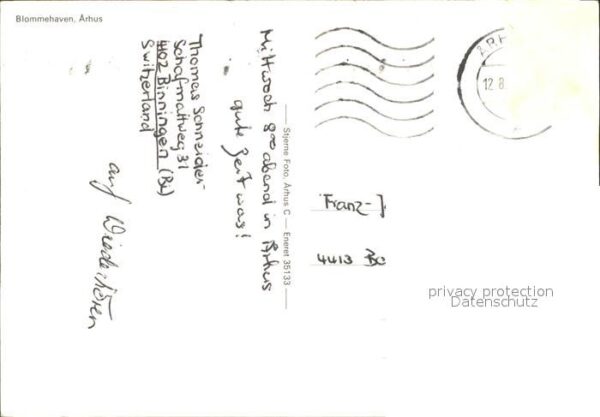 Blommehaven, Århus
Mittwoch 8⁰⁰ abend in Århus
gute Zeit was!
Thomas Schneider
Schafmattweg 31
4402 Binningen (BL)
Switzerland
auf Wiederhören
Stjerne Foto, Århus C — Eneret 35133
ÅRH
12.8.
Franz-J
4413 Be
privacy protection
Datenschutz